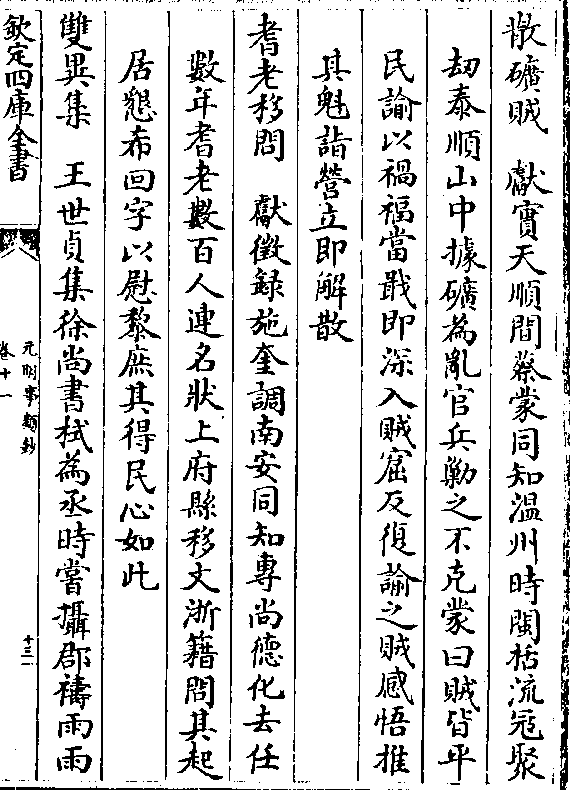 散礦賊　獻實天順間蔡蒙同知溫州時閩括流冦聚
刼泰順山中據礦為亂官兵勦之不克蒙曰賊皆平
民諭以禍福當戢即深入賊窟反復諭之賊感悟推
其魁詣營立即解散
耆老移問　獻徵録施奎調南安同知專尚德化去任
數年耆老數百人連名狀上府縣移文浙籍問其起
居懇布回字以慰黎庶其得民心如此
雙異集　王世貞集徐尚書栻為丞時嘗攝郡禱雨雨
欽定四庫全書
元明事類鈔
卷十一
十三